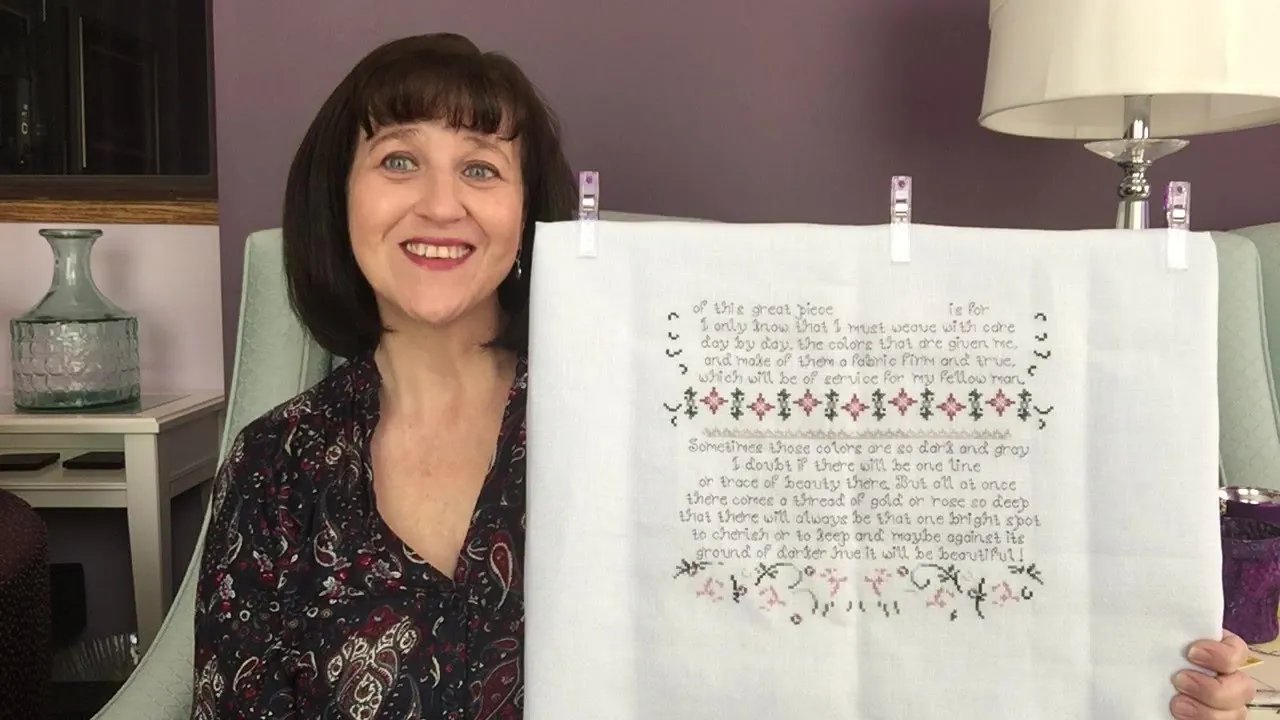 of this great piece is for
I only know that I must weave with care
day by day, the colors that are given me,
and make of them a fabric firm and true,
which will be of service for my fellow man.
Sometimes those colors are so dark and gray
I doubt if there will be one line
or trace of beauty there. But all at once
there comes a thread of gold or rose so deep
that there will always be that one bright spot
to cherish or to keep and maybe against its
ground of darker hue it will be beautiful!